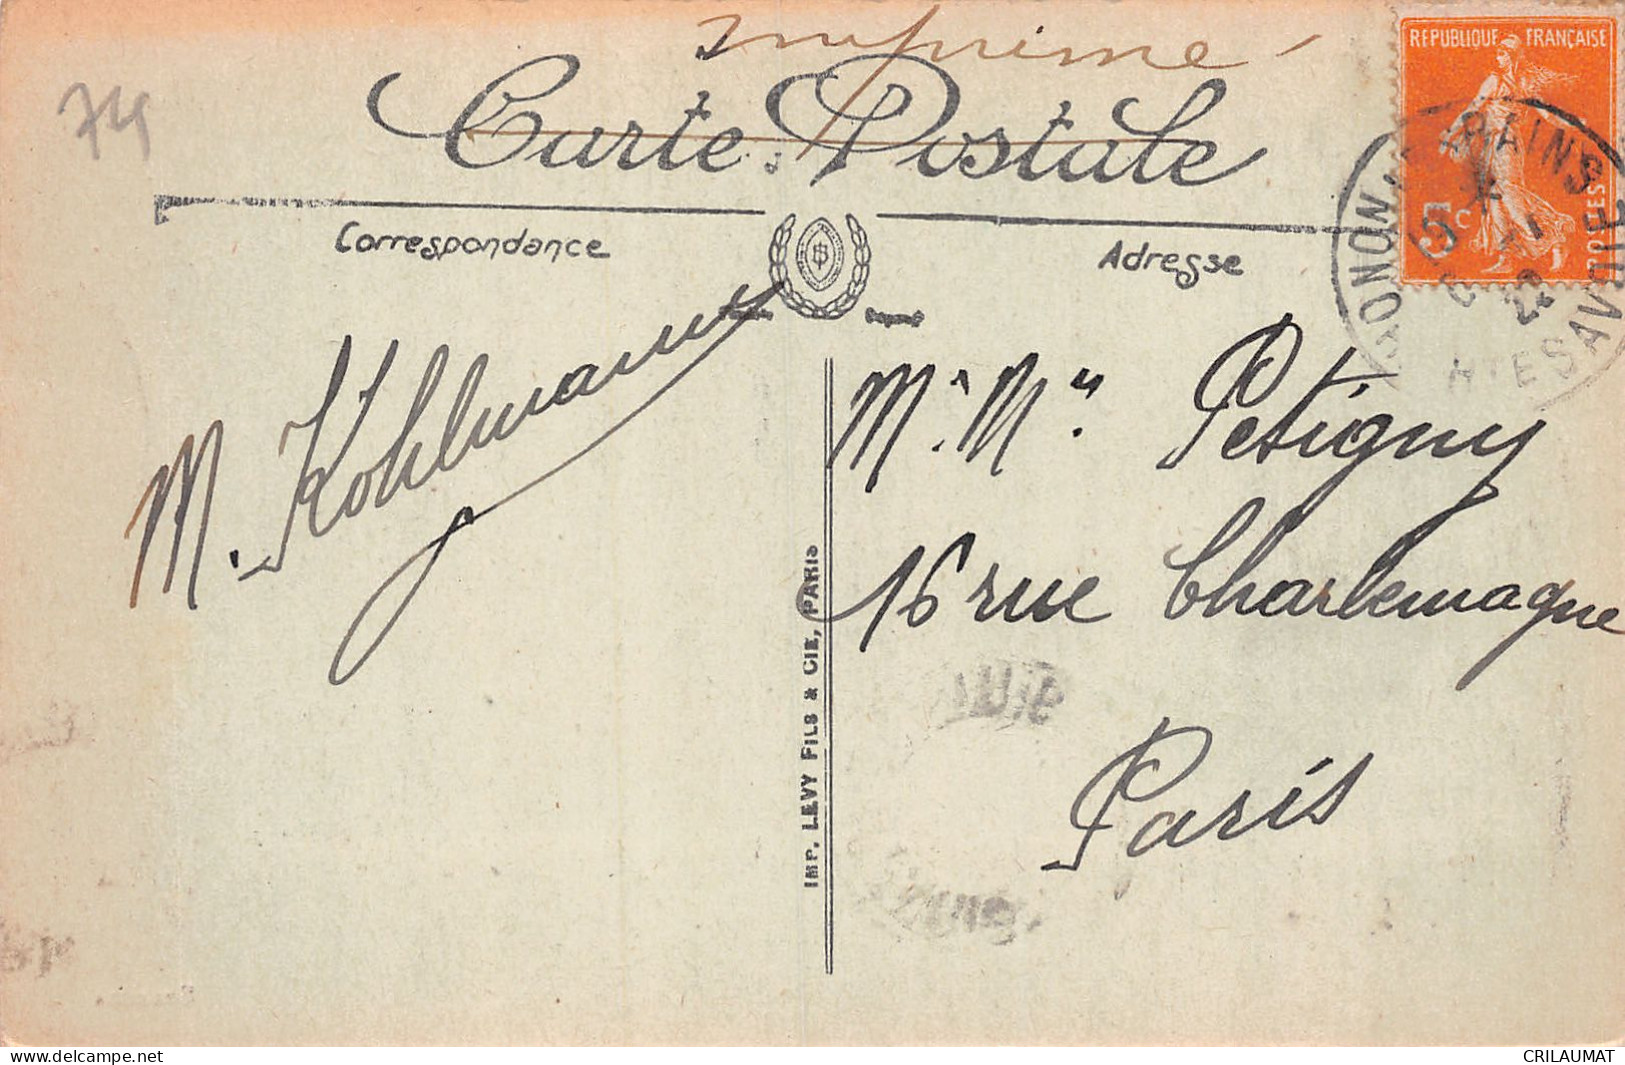 Imprimé
74
Carte Postale
RÉPUBLIQUE FRANÇAISE
5c
POSTES
Correspondance
Adresse
HTE SAVOIE
M. Kohlmann
Mr. Mme. Petigny
16 rue Charlemagne
Paris
IMP. LEVY FILS & CIE, PARIS
delcampe.net
CRILAUMAT